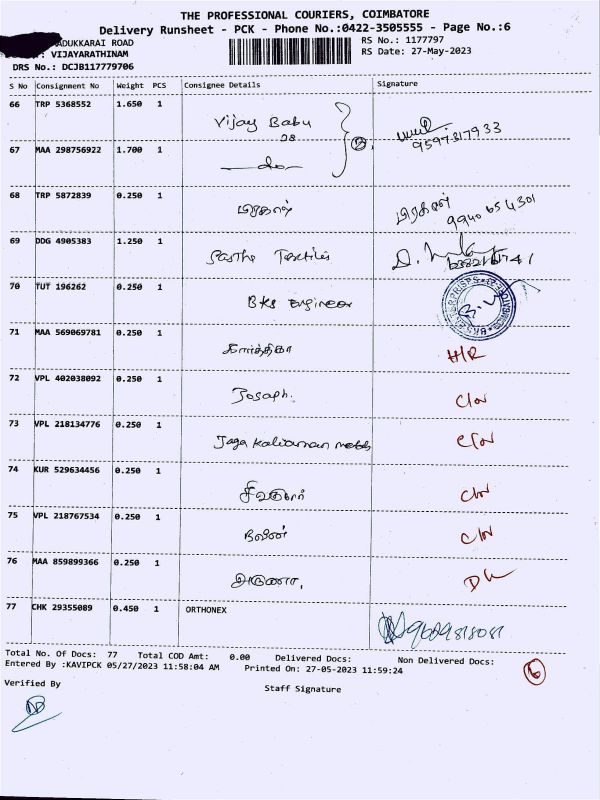 THE PROFESSIONAL COURIERS, COIMBATORE
Delivery Runsheet - PCK - Phone No.:0422-3505555 - Page No.:6
ADUKKARAI ROAD
: VIJAYARATHINAM
DRS No.: DCJB117779706
RS No.: 1177797
RS Date: 27-May-2023
S No Consignment No Weight PCS Consignee Details Signature
66 TRP 5368552 1.650 1 Vijay Babu
28
9597317933
67 MAA 298756922 1.700 1 do
68 TRP 5872839 0.250 1 பிரகாஷ்
பிரகாஷ்
9940654301
69 DDG 4905383 1.250 1 Parthe Textiles
70 TUT 196262 0.250 1 BKS Engineer
71 MAA 569069781 0.250 1 கார்த்திகா H/R
72 VPL 402038092 0.250 1 Josaph. C/N
73 VPL 218134776 0.250 1 Jaga C/N
74 KUR 529634456 0.250 1 சிவகுமார் C/N
75 VPL 218767534 0.250 1 நவீன் C/N
76 MAA 859899366 0.250 1 அருணா, DL
77 CHK 29355089 0.450 1 ORTHONEX 9689818081
Total No. Of Docs: 77 Total COD Amt: 0.00 Delivered Docs: Non Delivered Docs:
Entered By :KAVIPCK 05/27/2023 11:58:04 AM Printed On: 27-05-2023 11:59:24
6
Verified By Staff Signature